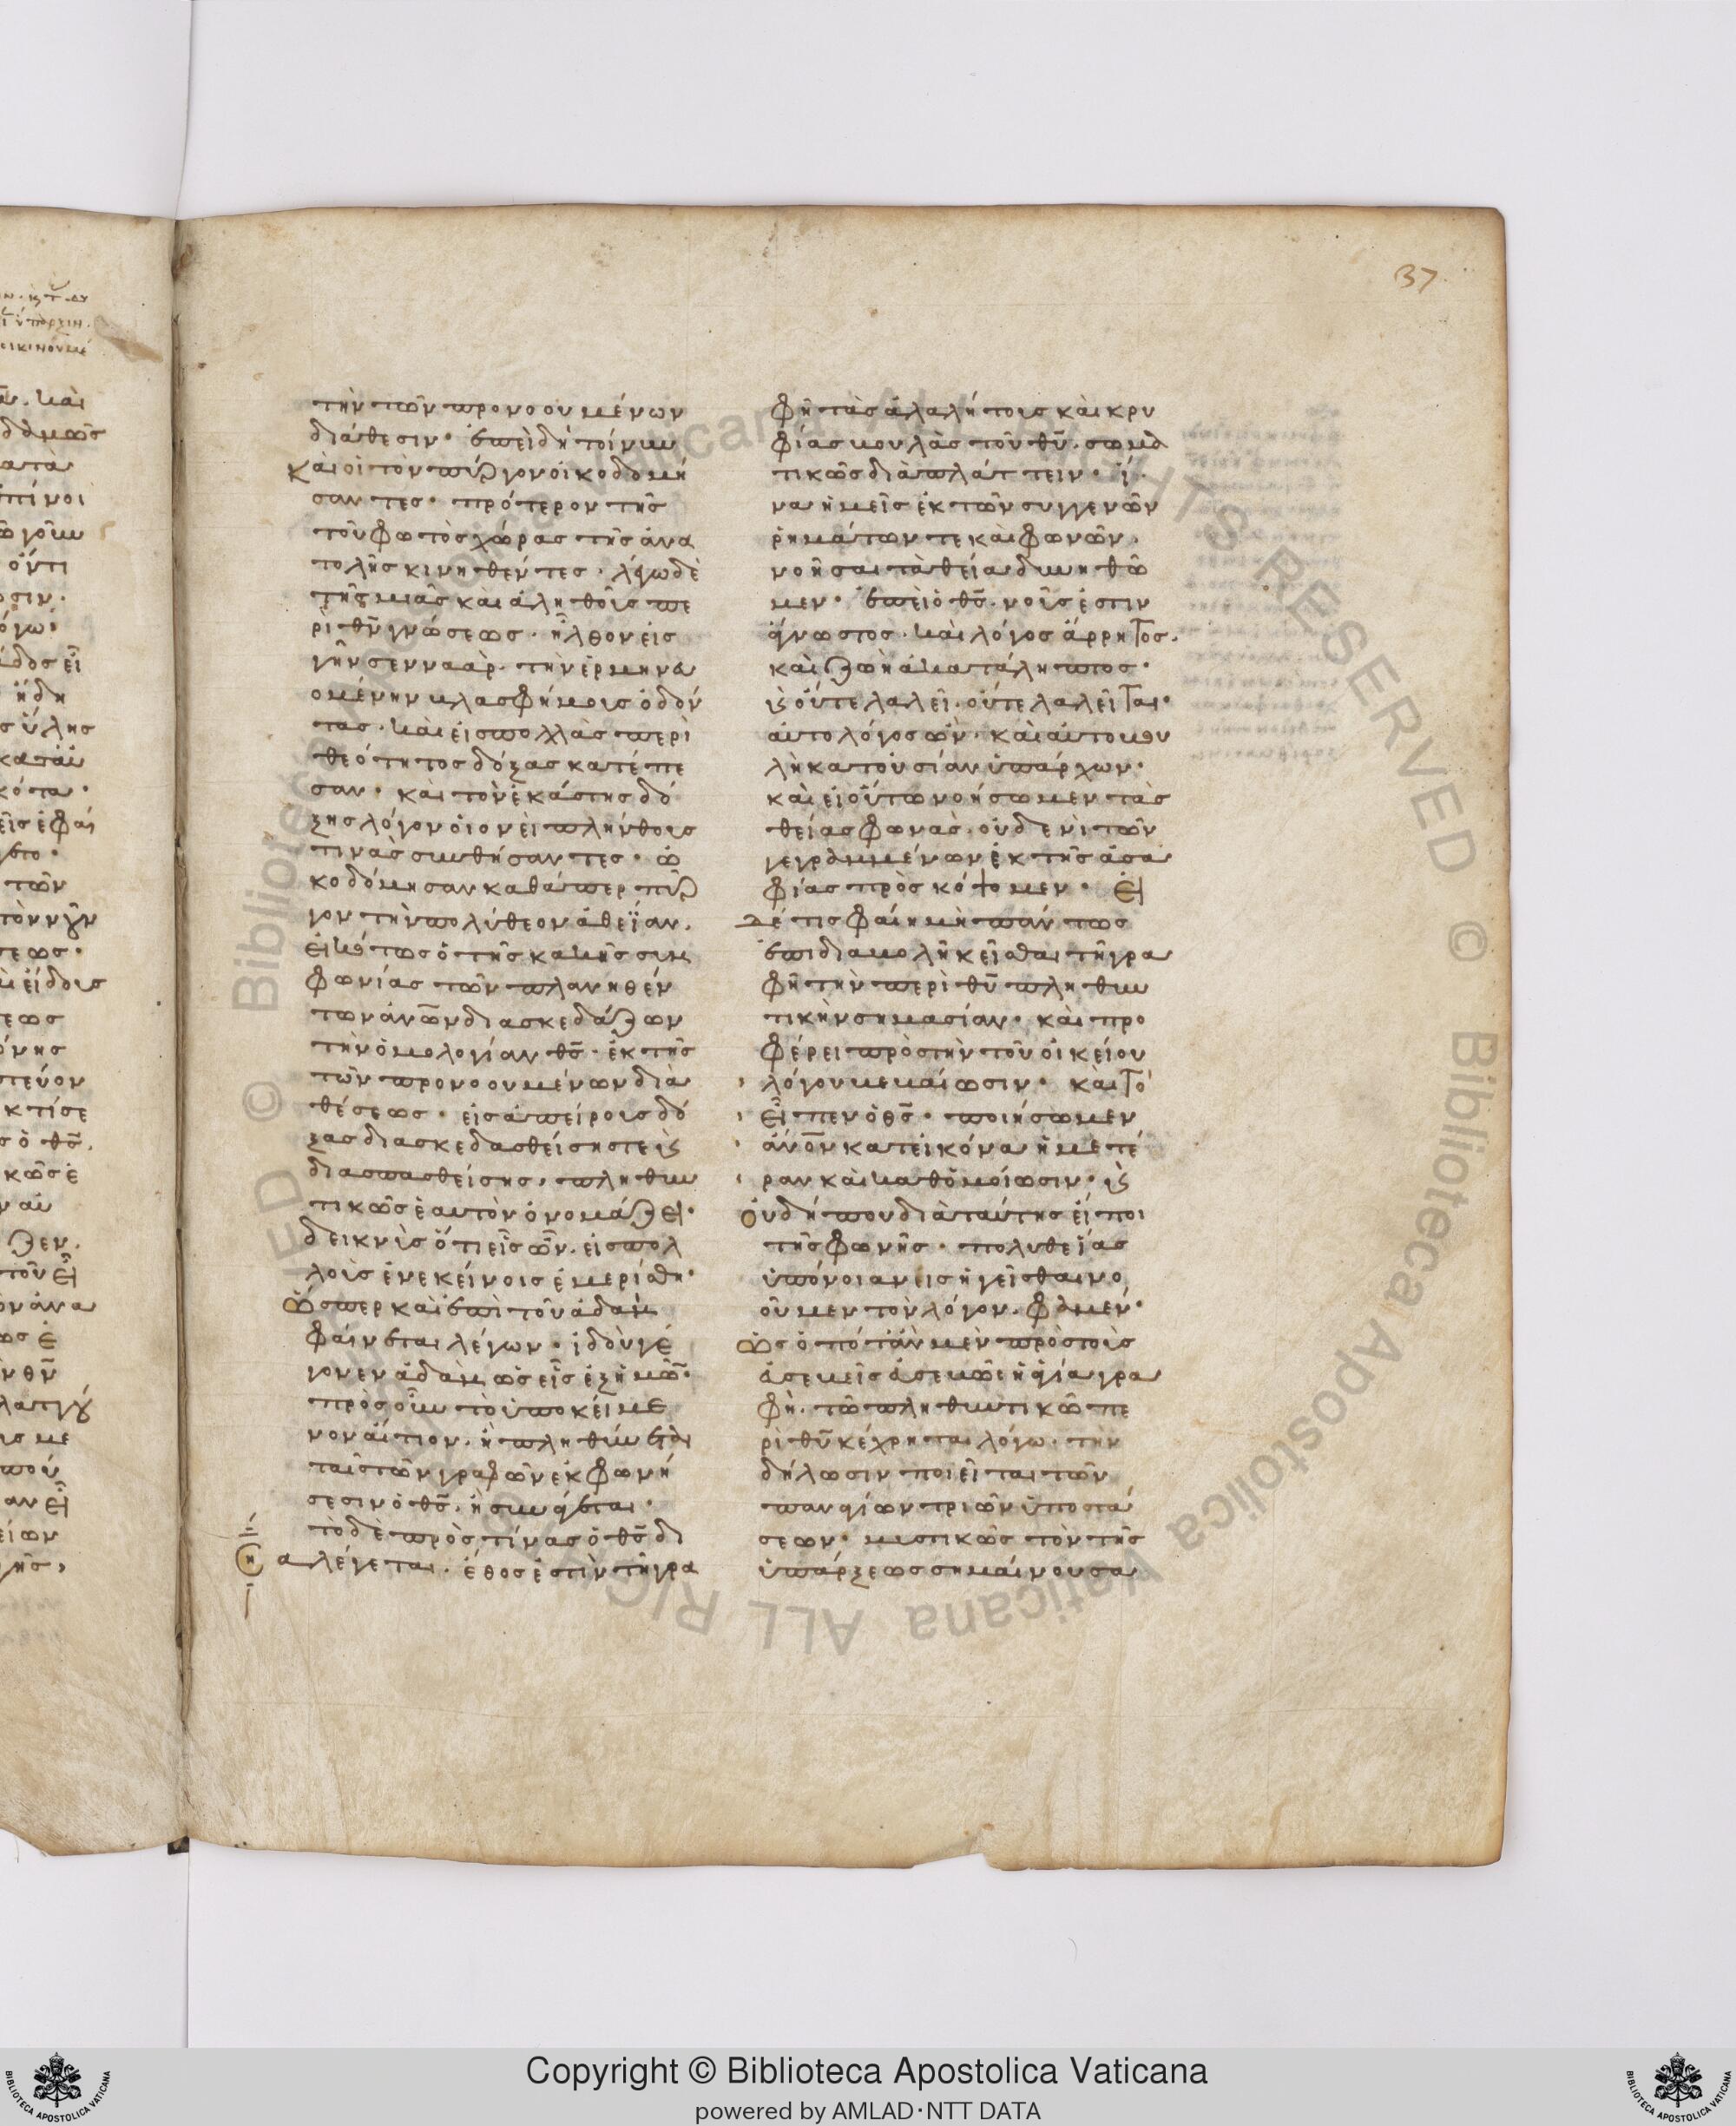 37
τὴν τῶν προνοουμένων
διάθεσιν· ἐπειδὴ τοίνυν
καὶ οἱ τὸν πύργον οἰκοδομή
σαντες· πρότερον τῆς
τοῦ φωτὸς χώρας τῆς ἀνα
τολῆς κινηθέντες· λέγω δὲ
τῆς μιᾶς καὶ ἀληθοῦς πε
ρὶ θῦ γνώσεως· ἦλθον εἰς
γῆν σενναάρ· τὴν ἑρμηνευ
ομένην βλασφήμους ὀδόν
τας· καὶ εἰς πολλὰς περὶ
θεότητος δόξας κατέπε
σαν· καὶ τὸν ἑκάστης δό
ξης λόγον οἱονεὶ πλήνθους
τινὰς συνθήσαντες· ὠ
κοδόμησαν καθάπερ πύρ
γον τὴν πολύθεον ἀθεΐαν·
εἰκότως ὁ τῆς κακῆς συμ
φωνίας τῶν πλανηθέν
των ἀνῶν διασκεδάζων
τὴν ὁμολογίαν θς· ἐκ τῆς
τῶν προνοουμένων δια
θέσεως· εἰς ἀπείρους δό
ξας διασκεδασθείσης τε κ
διασπασθείσης, πληθυν
τικῶς ἑαυτὸν ὀνομάζει·
δεικνὺς ὅτι εἷς ὢν· εἰς πολ
λοὺς ἐν ἐκείνοις ἐμερίσθη·
ὥσπερ καὶ ἐπὶ τοῦ ἀδὰμ
φαίνεται λέγων· ἰδοὺ γέ
γονεν ἀδὰμ ὡς εἷς ἐξ ἡμῶ·
πρὸς οὖν τὸ ὑποκείμε
νον αἴτιον· ἢ πληθύνεται
ταῖς τῶν γραφῶν ἐκφωνή
σεσιν ὁ θς· ἢ συνάγεται·
τὸ δὲ πρὸς τίνας ὁ θς δι
αλέγεται· ἔθος ἐστὶν τῆ γρα
φῆ τὰς ἀλαλήτους καὶ κρυ
φίας βουλὰς τοῦ θῦ· σωμα
τικῶς διαπλάττειν· ἵ
να ἡμεῖς ἐκ τῶν συγγενῶν
ῥημάτων τε καὶ φωνῶν·
νοῆσαι τὰ θεῖα δυνηθῶ
μεν· ἐπεὶ ὁ θς· νοῦς ἐστιν
ἄγνωστος· καὶ λόγος ἄρρητος·
καὶ ζωὴ ἀκατάληπτος·
κ οὔτε λαλεῖ· οὔτε λαλεῖται·
αὐτολόγος ὢν· καὶ αὐτοβου
λὴ κατουσίαν ὑπάρχων·
καὶ εἰ οὕτω νοήσωμεν τὰς
θείας φωνὰς· οὐδενὶ τῶν
γεγραμμένων ἐκ τῆς ἀσα
φίας πρὸς κόψομεν· εἰ
δέ τις φαίη μὴ πάντως
ἐπιδιαβολῆ κεῖσθαι τῆ γρα
φῆ τὴν περὶ θῦ πληθυν
τικὴν σημασίαν· καὶ προ
φέρει πρὸς τὴν τοῦ οἰκείου
λόγου βεβαίωσιν· καὶ τό
εἶπεν ὁ θς· ποιήσωμεν
ἄνον κατ εἰκόνα ἡμετέ
ραν καὶ καθ ὁμοίωσιν· κ
οὐδήπου διὰ ταύτης εἴποι
τῆς φωνῆς· πολυθεΐας
ὑπόνοιαν εἰσηγεῖσθαι νο
οῦμεν τὸν λόγον· φαμέν·
ὡς ὁπόταν μὲν πρὸς τοὺς
εὐσεβεῖς εὐσεβῶς ἡ ἁγία γρα
φὴ· τῶ πληθυντικῶ πε
ρὶ θῦ κέχρηται λόγω· τὴν
δήλωσιν ποιεῖται τῶν
παναγίων τριῶν ὑποστά
σεων· μυστικῶς τὸν τῆς
ὑπάρξεως σημαίνουσα
Copyright © Biblioteca Apostolica Vaticana
powered by AMLAD·NTT DATA